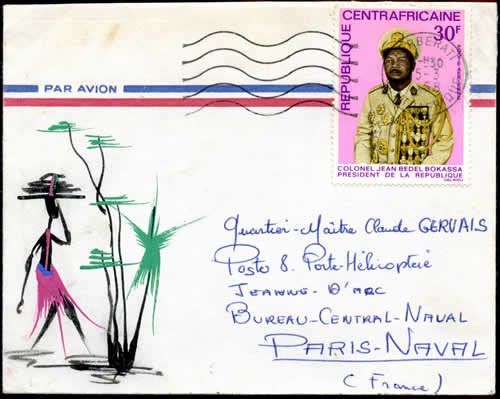 PAR AVION
REPUBLIQUE
CENTRAFRICAINE
30F
BERBERATI
COLONEL JEAN BEDEL BOKASSA
PRESIDENT DE LA REPUBLIQUE
Quartier-Maître Claude GERVAIS
Poste 8. Porte-Hélicoptère
JEANNE-D'ARC
BUREAU-CENTRAL-NAVAL
PARIS-NAVAL
(France)